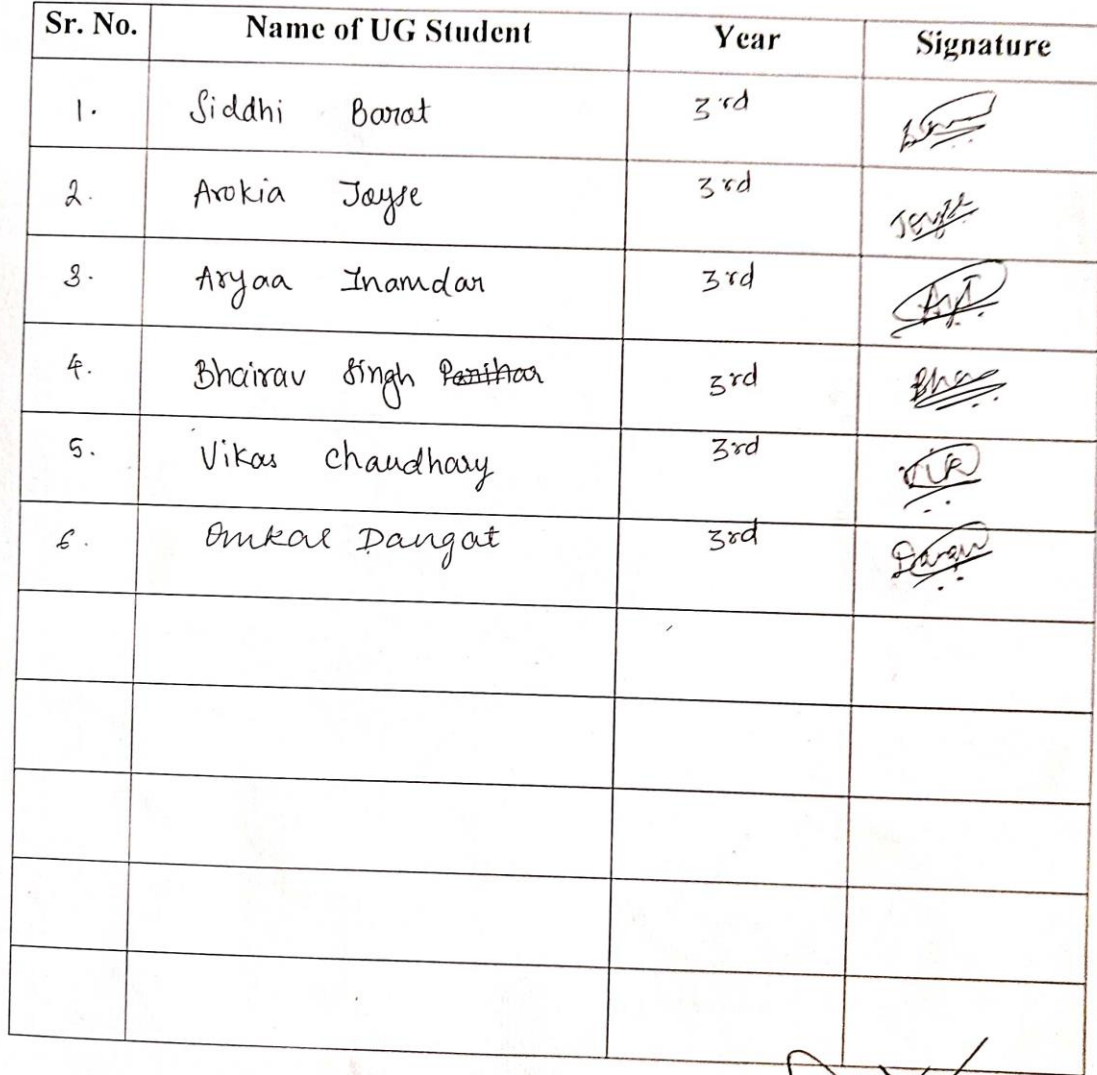 Sr. No. Name of UG Student Year Signature
1. Siddhi Barat 3rd
2. Arokia Jayse 3rd
3. Aryaa Inamdar 3rd
4. Bhairav Singh 3rd
5. Vikas Chaudhary 3rd
6. Omkar Dangat 3rd